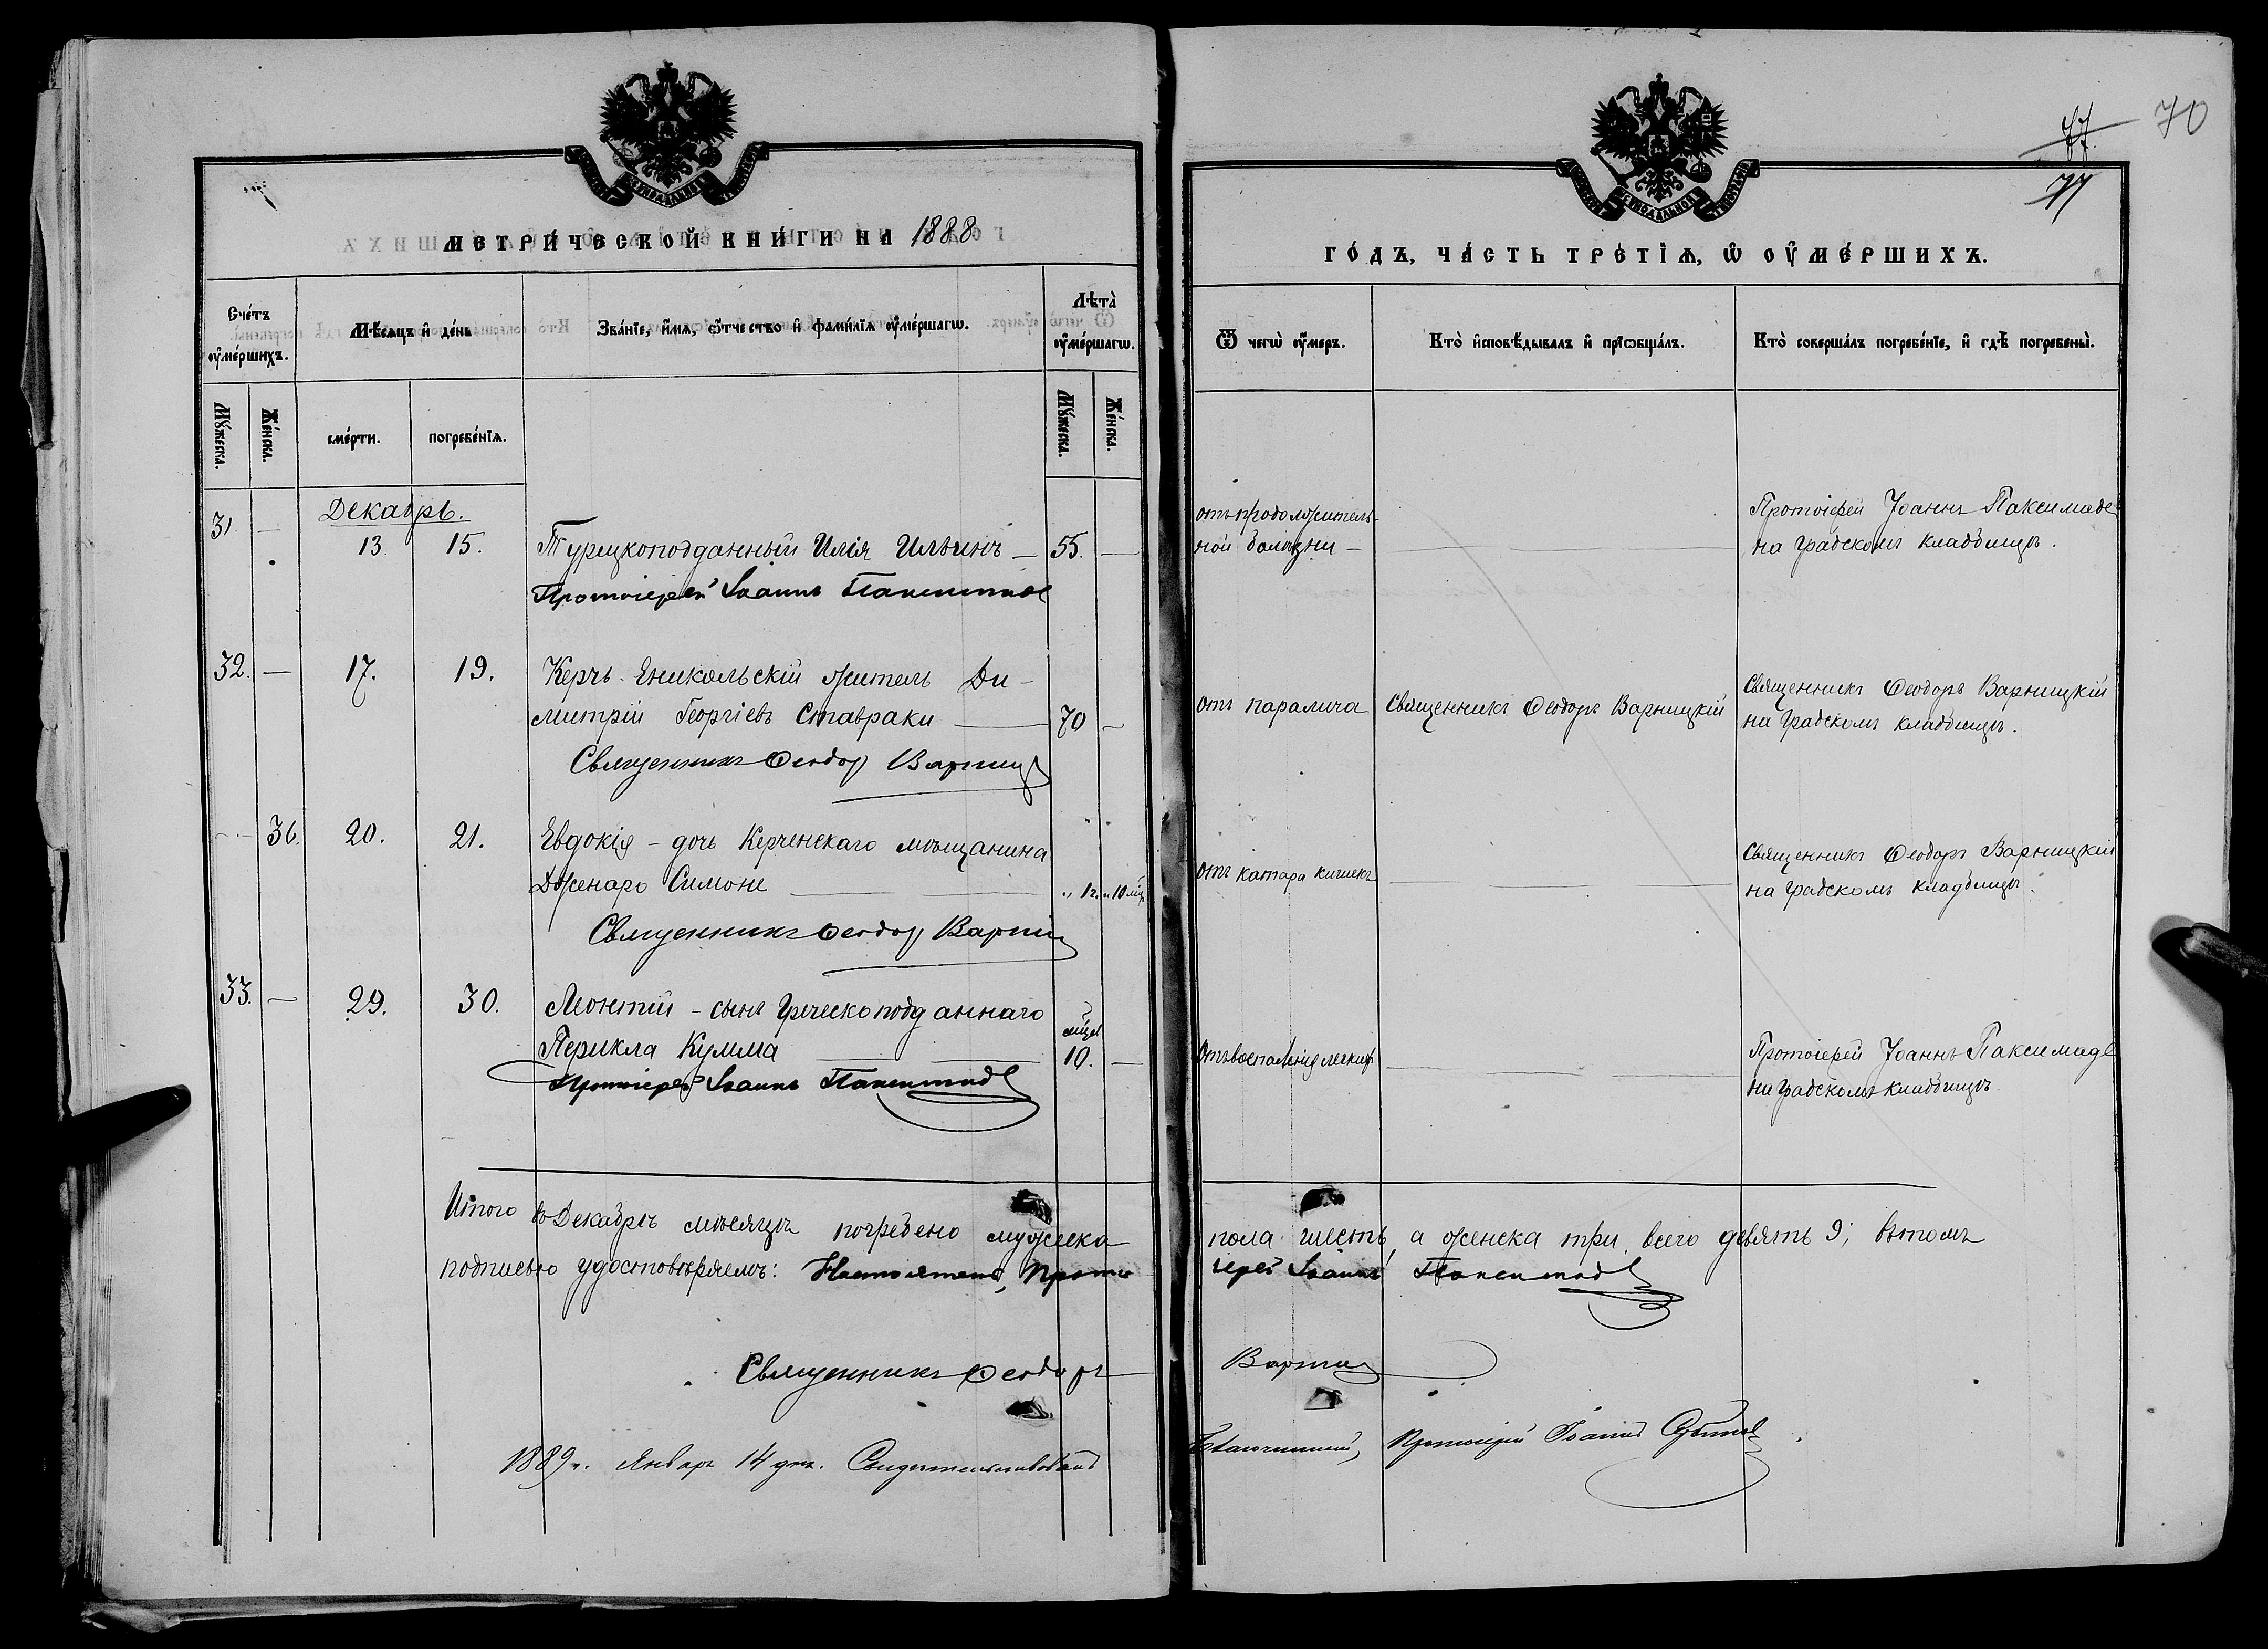 70
77
77
МЕТРИ́ЧЕСКОЙ КНИ́ГИ НА 1888
ГО́ДЪ, ЧА́СТЬ ТРЕ́ТІѦ, Ѡ҆ ОУ҆МЕ́РШИХЪ.
Сче́тъ
оу҆ме́ршихъ.
Мѣ́сяцъ и҆ де́нь
Зва́нїе, и҆́мя, ѻ҆́тчество и҆ фами́лїя оу҆ме́ршагѡ.
Лѣта̀
оу҆ме́ршагѡ.
Ѿ чегѡ̀ оу҆́меръ.
Кто̀ и҆сповѣ́дывалъ и҆ прїѡбща́лъ.
Кто̀ соверша́лъ погребе́нїе, и҆ гдѣ̀ погребены̀.
Мꙋ́жеска.
Же́нска.
сме́рти.
погребе́нїя.
Мꙋ́жеска.
Же́нска.
Декабрь.
31. — 13. 15. Турецкоподданный Илія Ильинъ — 55. —
Протоіерей Іоаннъ Паксимаде
отъ продолжитель-
ной болѣзни —
Протоіерей Іоаннъ Паксимаде
на градскомъ кладбищѣ.
32. — 17. 19. Керчь-Еникольскій житель Ди-
митрій Георгіевъ Ставраки — 70 —
Священникъ Ѳеодоръ Варниц
отъ паралича
Священникъ Ѳеодоръ Варницкій
Священникъ Ѳеодоръ Варницкій
на градскомъ кладбищѣ.
— 36. 20. 21. Евдокія - дочь Керченскаго мѣщанина
Дженаро Симоне — „ 1г. „ 10 мц.
Священникъ Ѳеодоръ Варниц
отъ катара кишекъ
Священникъ Ѳеодоръ Варницкій
на градскомъ кладбищѣ.
33. — 29. 30. Леонтій - сынъ Греческоподданнаго
Перикла Кулима — мцев 10. —
Протоіерей Іоаннъ Паксимаде
отъ воспаленія легкихъ
Протоіерей Іоаннъ Паксимаде
на градскомъ кладбищѣ
Итого въ Декабрѣ мѣсяцѣ погребено мужеска пола шесть, а женска три, всего девять 9; въ томъ
подписью удостовѣряемъ: Настоятель, Прото іерей Іоаннъ Паксимаде
Священникъ Ѳеодоръ Варниц
1889 г. Января 14 дня. Свидѣтельствовалъ Благочинный, Протоіерей Іоаннъ